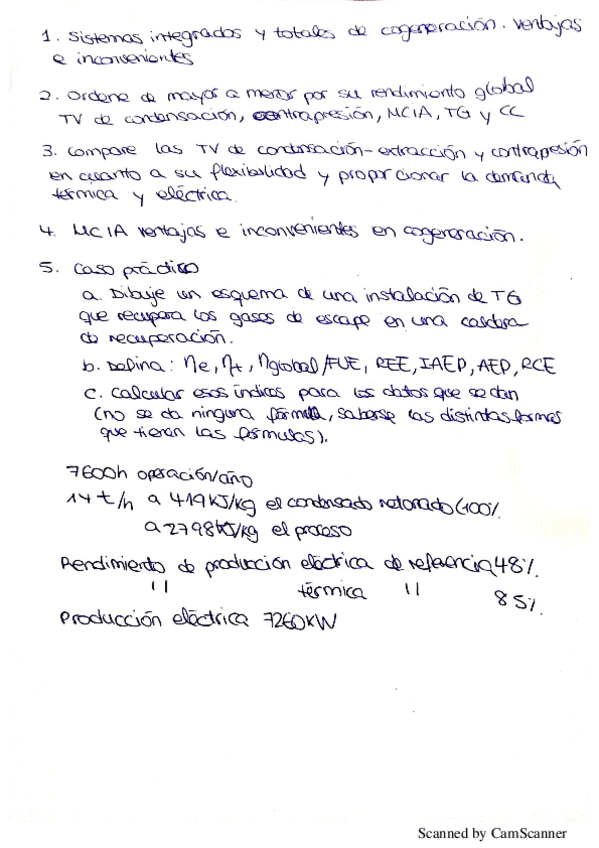 1. Sistemas integrados y totales de cogeneración. Ventajas
e inconvenientes
2. Ordene de mayor a menor por su rendimiento global
TV de condensación, contrapresión, MCIA, TG y CC
3. Compare las TV de condensación-extracción y contrapresión
en cuanto a su flexibilidad y proporcionar la demanda
térmica y eléctrica.
4. MCIA ventajas e inconvenientes en cogeneración.
5. Caso práctico
a. Dibuje un esquema de una instalación de TG
que recupera los gases de escape en una caldera
de recuperación.
b. Defina: ηe, ηt, ηglobal/FUE, REE, IAEP, AEP, RCE
c. Calcular esos índices para los datos que se dan
(no se da ninguna fórmula, saberse las distintas formas
que tienen las fórmulas).
7600h operación/año
14 t/h a 419 KJ/kg el condensado retornado (100%
a 2798 KJ/kg el proceso
Rendimiento de producción eléctrica de referencia 48%.
" térmica " 85%
Producción eléctrica 7260KW
Scanned by CamScanner